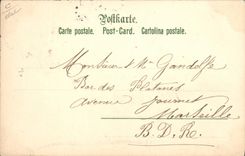 Postkarte.
Carte postale. Post-Card. Cartolina postale.
Monsieur & Me Gandolfe
Bar des Platanes
avenue Journet
Marseille
B. D. R.